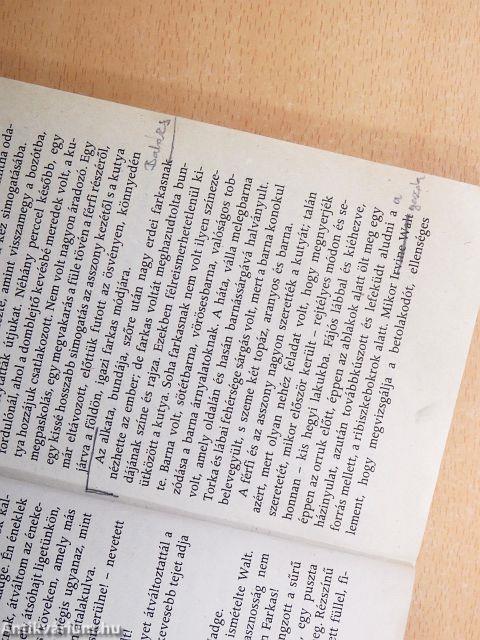 lytatták útjukat. Néhány perccel később, egy
fordulónál, ahol a domblejtő kevésbé meredek volt, a ku-
tya hozzájuk csatlakozott. Nem volt nagyon áradozó. Egy
megpaskolás, egy megvakarás a füle tövén a férfi részéről,
egy kissé hosszabb simogatás az asszony kezétől s a kutya
már eltávozott, előttük futott az ösvényen, könnyedén
járva a földön, igazi farkas módjára.
Az alkata, bundája, szőre után nagy erdei farkasnak
nézhette az ember; de farkas voltát meghazudtolta bun-
dájának színe és rajza. Ezekben félreismerhetetlenül ki-
ütközött a kutya. Soha farkasnak nem volt ilyen színeze-
te. Barna volt, sötétbarna, vörösesbarna, valóságos tob-
zódása a barna árnyalatoknak. A háta, válla melegbarna
volt, amely oldalán és hasán barnássárgává halványult.
Torka és lábai fehérsége sárgás volt, mert a barna konokul
belevegyült, a szeme két topáz, aranyos és barna.
A férfi és az asszony nagyon szerették a kutyát; talán
azért, mert olyan nehéz feladat volt, hogy megnyerjék
szeretetét, mikor először került – rejtélyes módon és se-
honnan – kis hegyi lakukba. Fájós lábbal és kiéhezve,
éppen az orruk előtt, éppen az ablakok alatt ölt meg egy
házinyulat, azután továbbkúszott és lefeküdt aludni a
forrás mellett, a ribiszkebokrok alatt. Mikor Irvine Walt
lement, hogy megvizsgálja a betolakodót, ellenséges
átváltom az éneke-
átsóhajt ligetünkön,
töveken, amely más
égis ugyanaz, mint
talakulva.
rülnel – nevetett
nyet átváltoztattál a
evesebb tejet adja
adge.
ismételte Walt.
asznosság nem
n Farkas!
ngzott a sűrű
egy puszta
g kézszínű
tt füllel, fi-
Antikvarium.hu